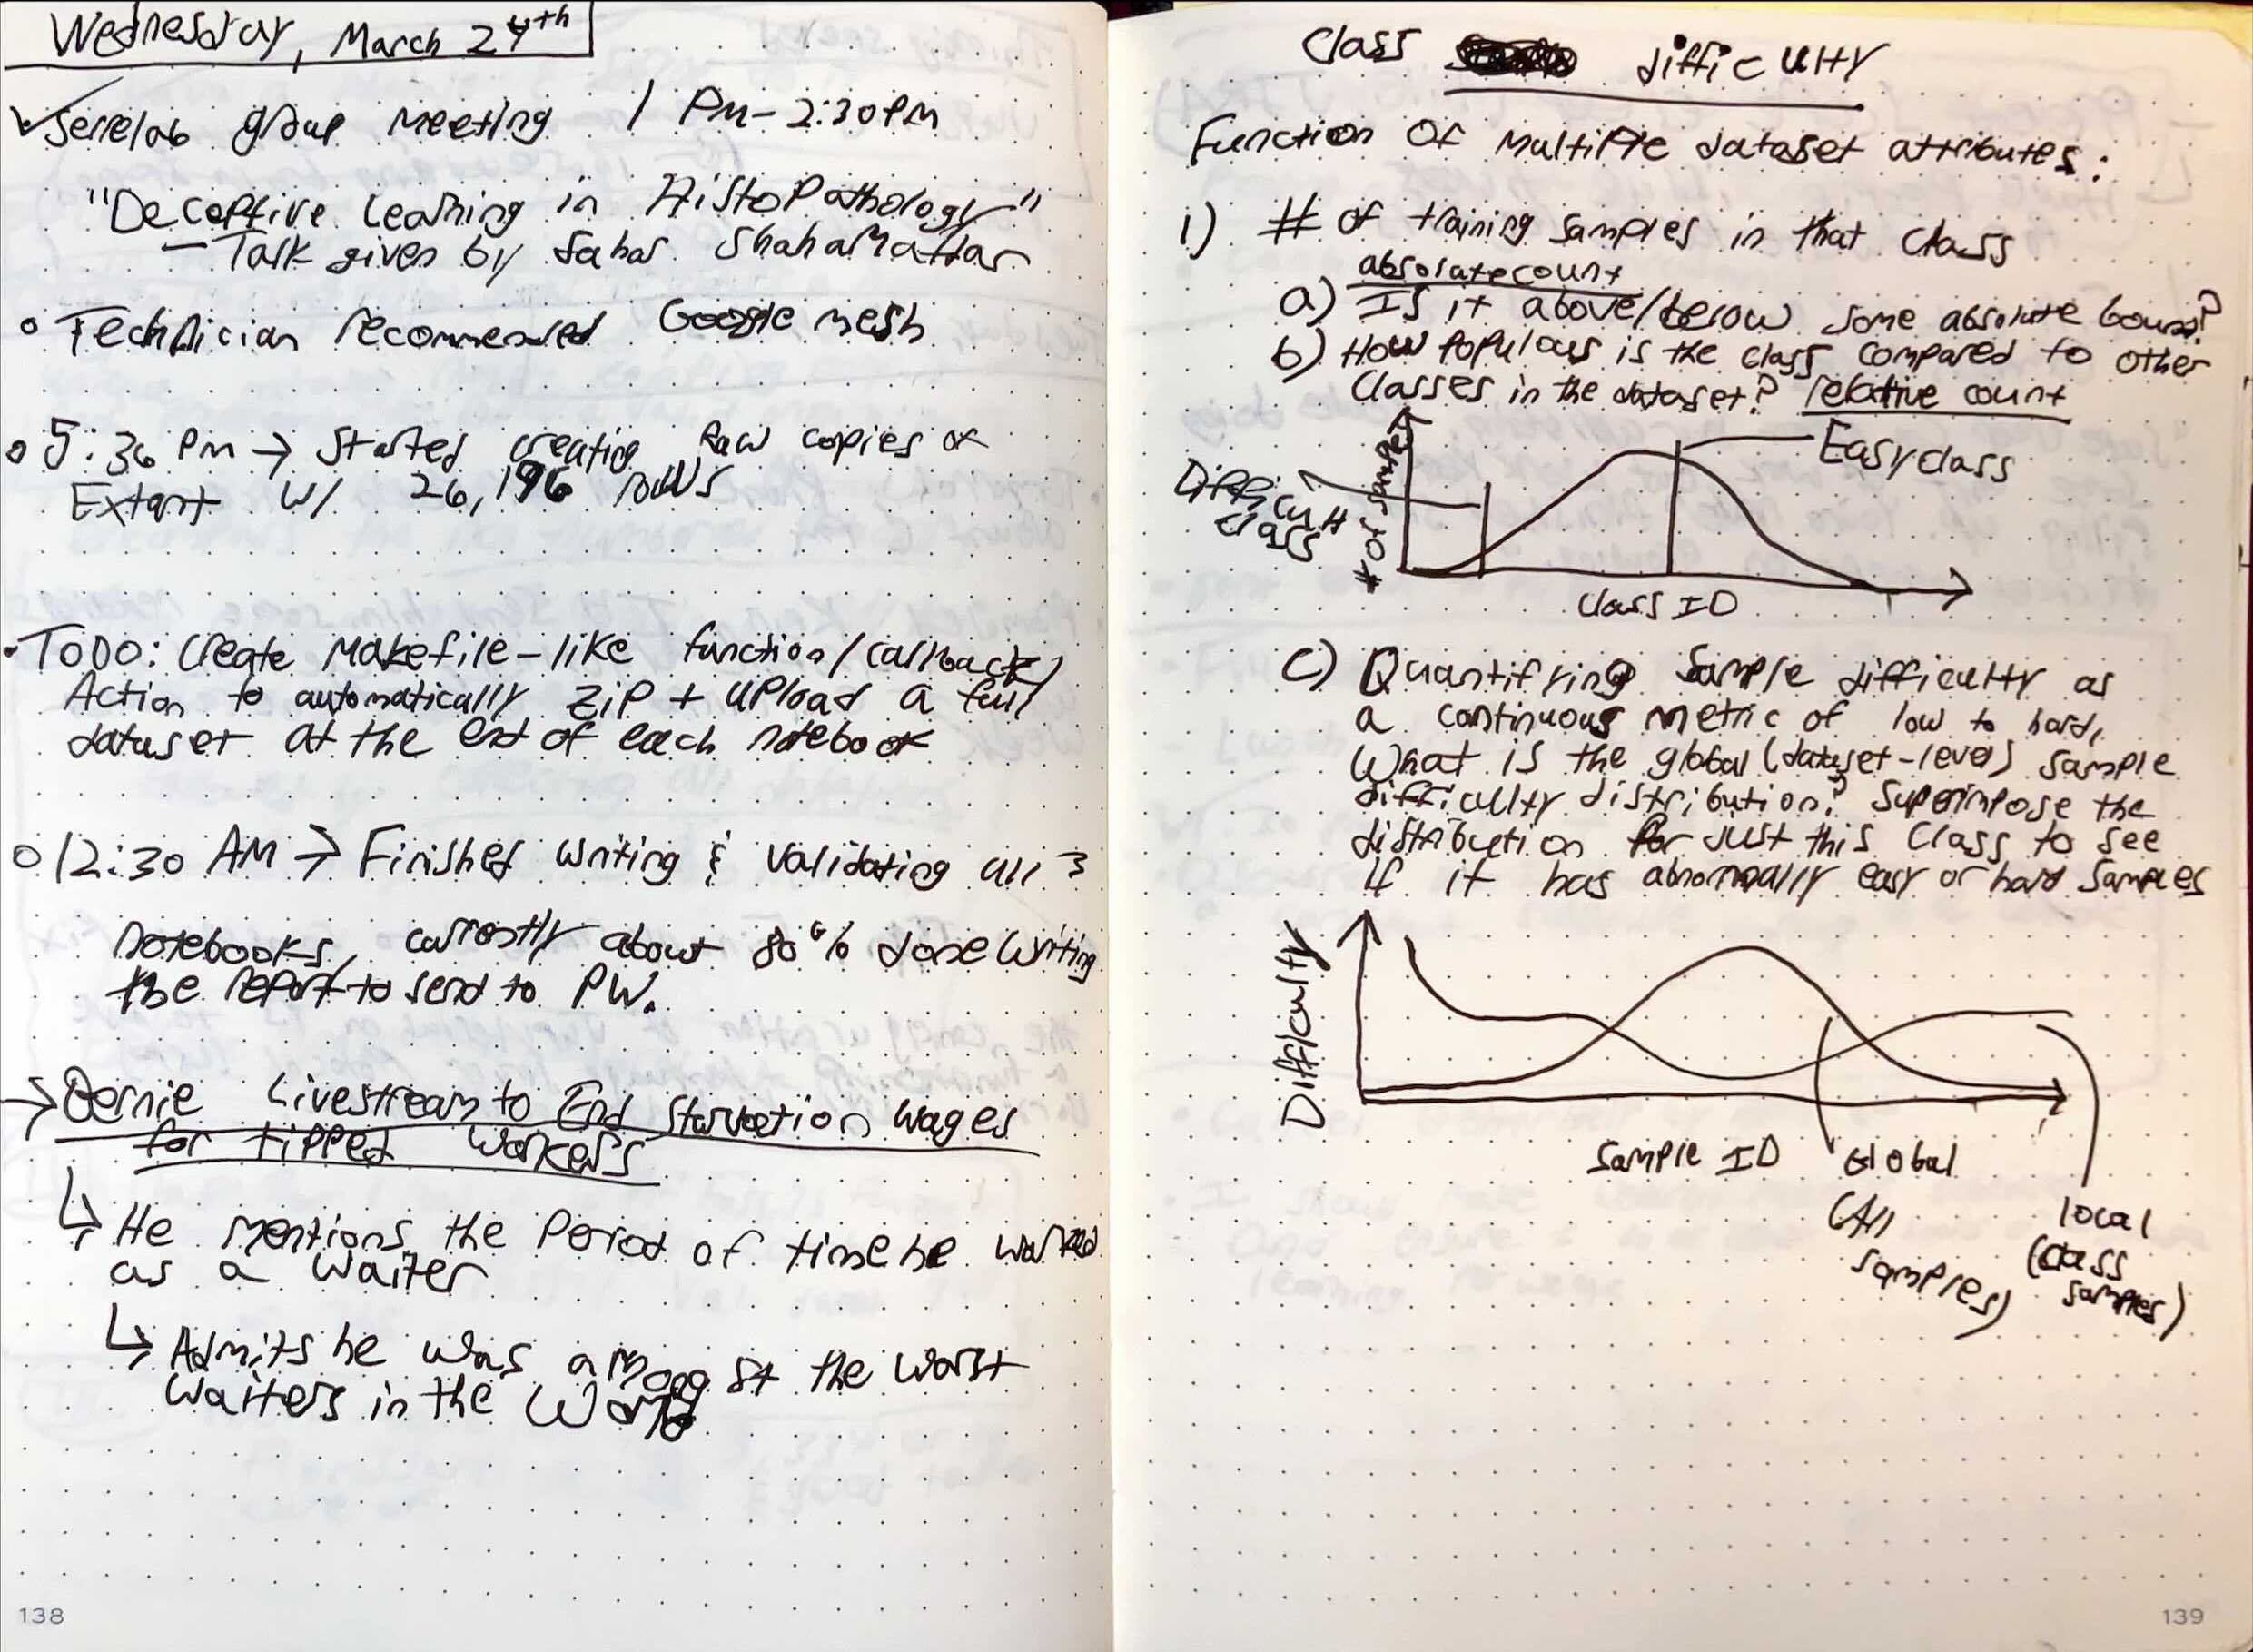 Wednesday, March 24th
Serrelab group meeting 1 PM - 2:30 PM
"Deceptive Learning in HistoPathology"
- Talk given by Sahar Shahamattar
Technician recommended Google mesh
5:36 PM → Started creating Raw copies of
Extant w/ 26,196 rows
TODO: Create Makefile-like function/callback/
Action to automatically zip + upload a full
dataset at the end of each notebook
12:30 AM → Finished writing & validating all 3
notebooks, currently about 80% done writing
the report to send to PW.
→ Bernie Livestream to End Starvation wages
for tipped workers
↳ He mentions the period of time he worked
as a waiter
↳ Admits he was amongst the worst
waiters in the World
138
Class difficulty
Function of multiple dataset attributes:
1) # of training samples in that class
absolute count
a) Is it above/below some absolute bound?
b) How populous is the class compared to other
classes in the dataset? relative count
# of samples
Difficult
class
Easy class
Class ID
c) Quantifying sample difficulty as
a continuous metric of low to hard,
What is the global (dataset-level) sample
difficulty distribution? Superimpose the
distribution for just this class to see
if it has abnormally easy or hard samples
Difficulty
Sample ID
Global
(All
samples)
local
(class
samples)
139